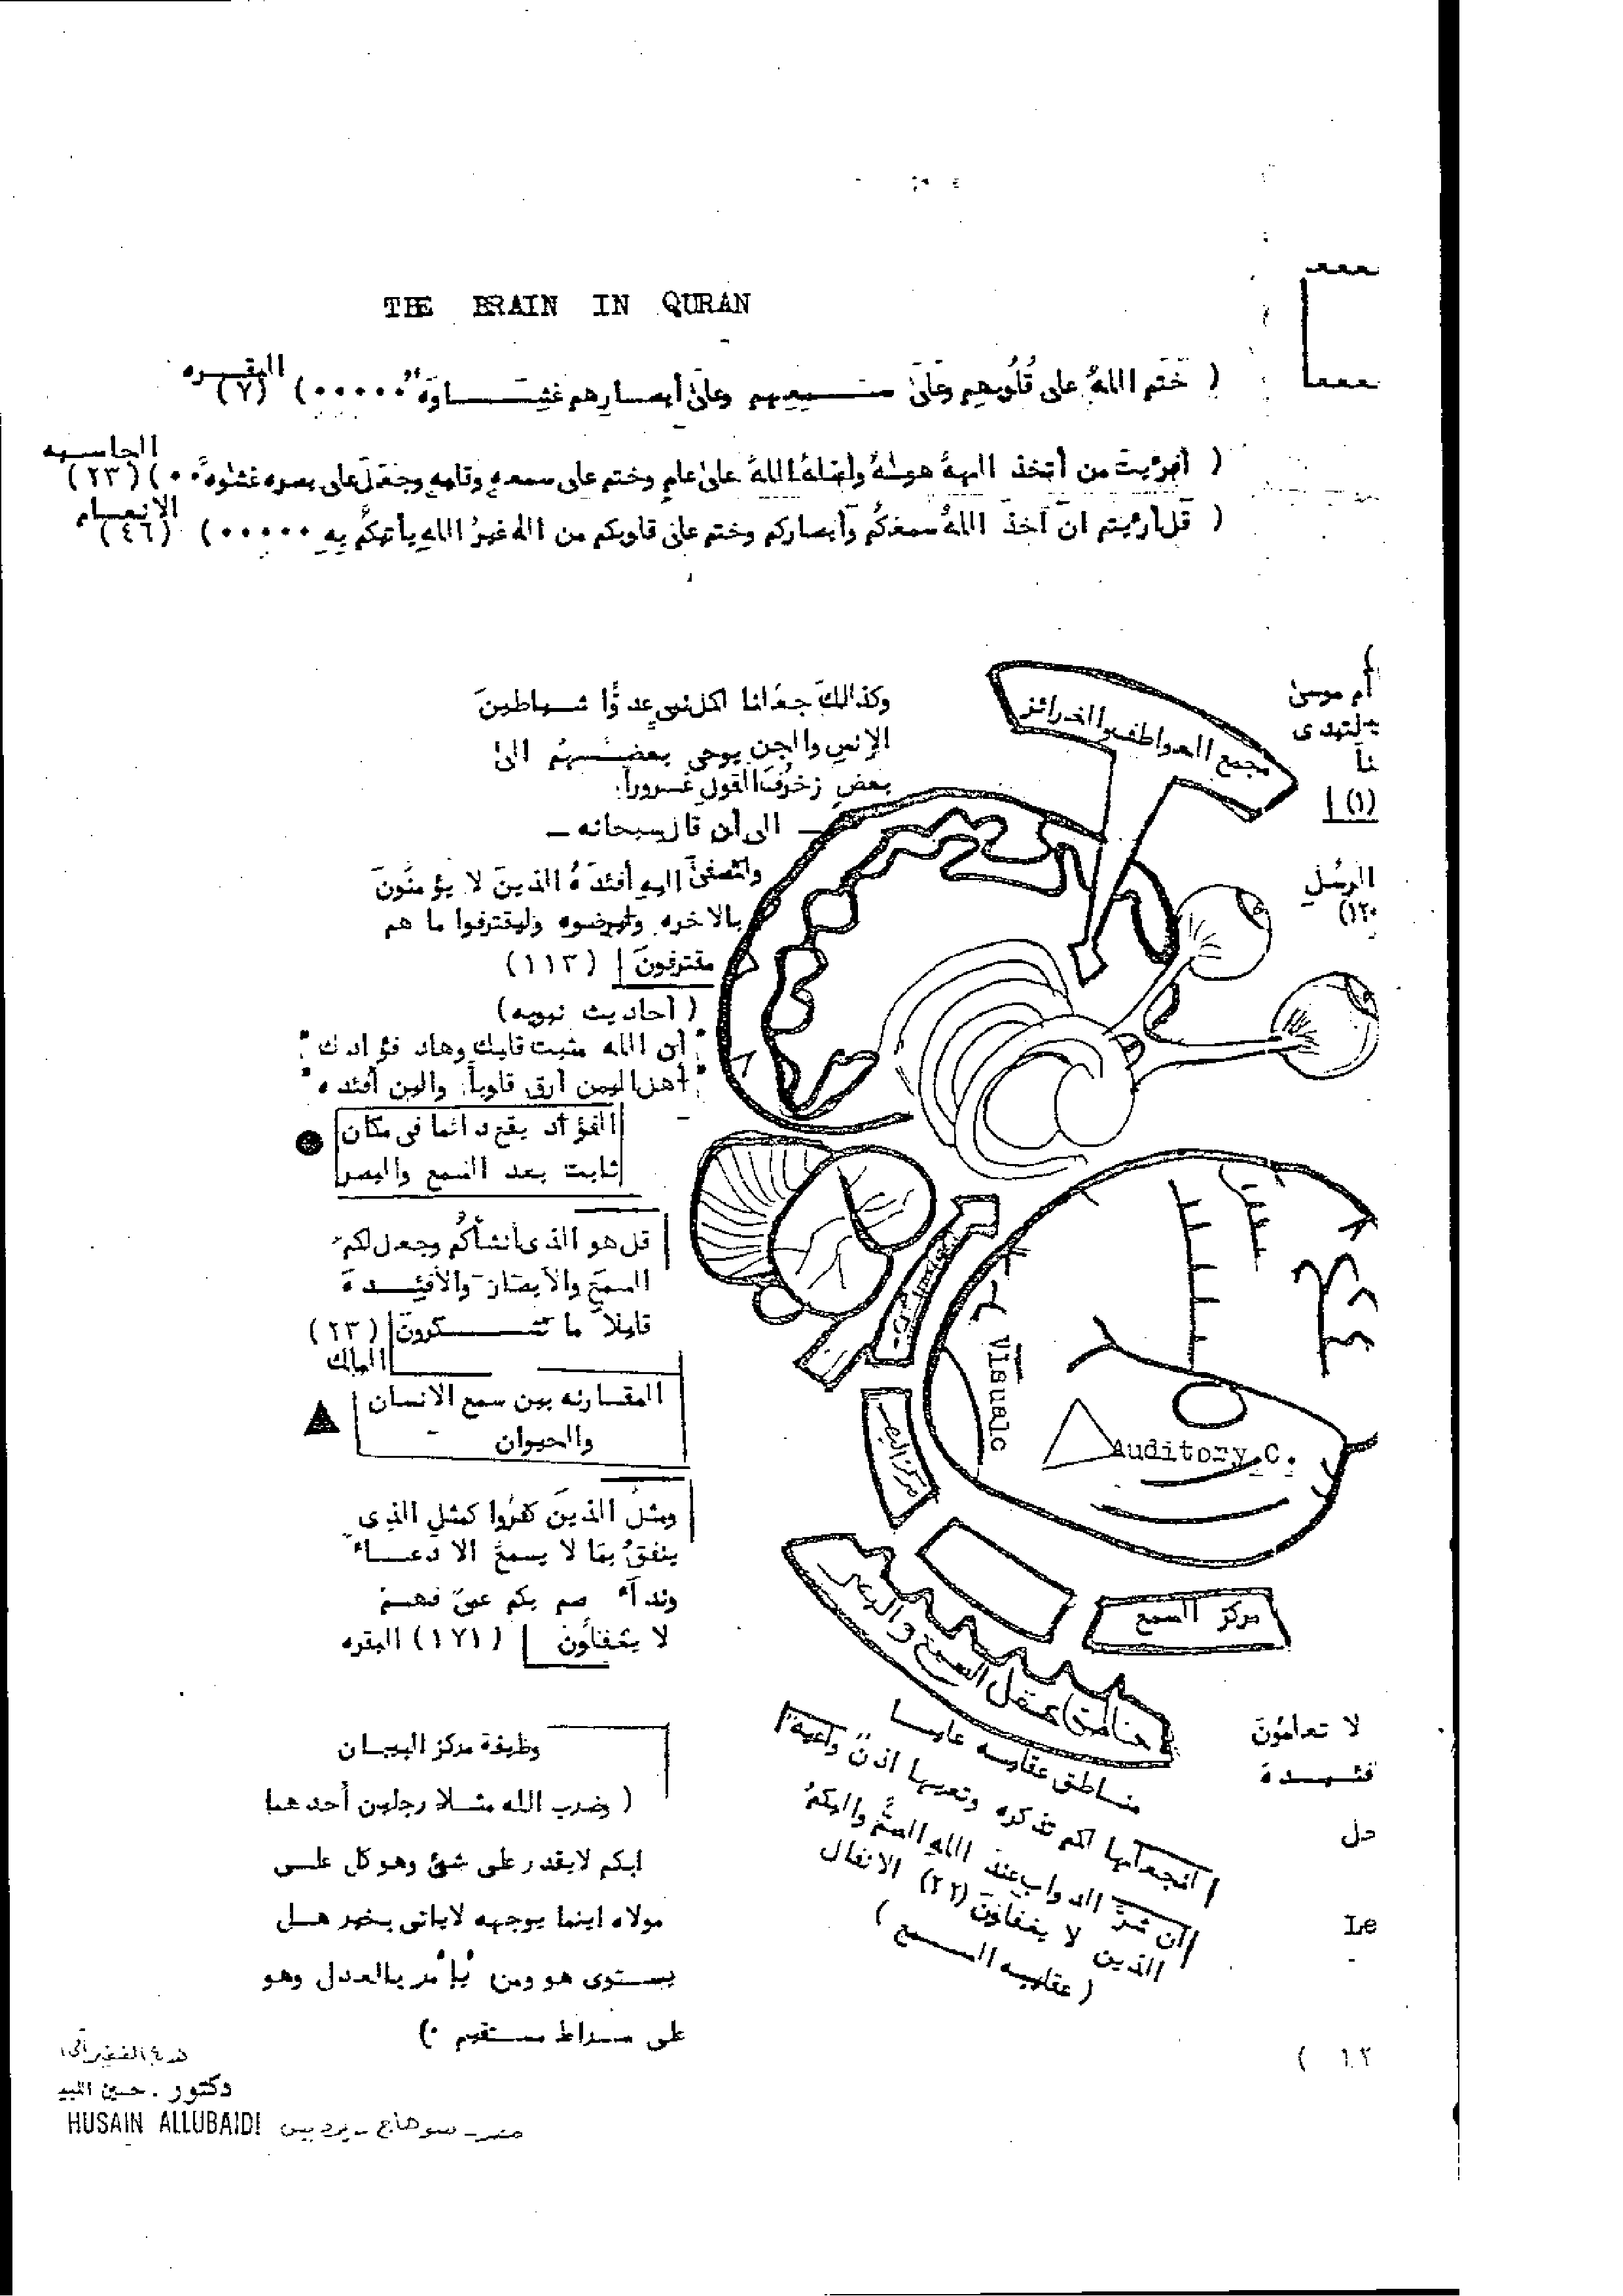 THE BRAIN IN QURAN
( ختم اللهُ على قُلُوبهِم وعَلَىٰ سمعِهِم وعلىٰ أبصارِهم غشاوَة ۰۰۰۰۰ ) البقره (٧)
( أفرءَيت من أتخذ الٰههُ هوٰىهُ وأضلهُ اللهُ علىٰ علمٍ وختم على سمعهِ وقلبهِ وجعَلَ على بصره غشٰوهً ۰۰ ) الجاسيه (٢٣)
( قل أرءيتم ان أخذَ اللهُ سمعَكُم وأبصاركم وختم على قلوبكم من اله غيرُ اللهِ يأتيكُم بِهِ ۰۰۰۰۰ ) الانعام (٤٦)
مجمع العواطف والغرائز
وكذالكَ جعَلنا لكل نبى عدوًّا شياطينَ
الإنسِ والجن يوحى بعضهُم الىٰ
بعضٍ زخرُفَ القولِ غروراً.
— الى أن قال سبحانه —
ولتصغىٰ اليهِ أفئدَةُ الذينَ لا يؤمنُونَ
بالاخره وليرضوه وليقترفوا ما هم
مقترفونَ (١١٣)
(أحاديث نبويه)
"أن الله مثبت قلبك وهاد فؤادك"
"أهل اليمن أرق قلوباً والين أفئده"
الفؤاد يقع دائما فى مكان
ثابت بعد السمع والبصر
قل هو الذى أنشأكُم وجعل لكم
السمعَ والأبصارَ والأفئِدةَ
قليلاً ما تشكرونَ (٢٣)
الملك
المقارنه بين سمع الانسان
والحيوان
ومثلُ الذينَ كفرُوا كمثلِ الذِى
ينعقُ بمَا لا يسمعُ الا دعاءً
ونداءً صم بكم عمىٌ فهم
لا يعقلُونَ (١٧١) البقره
وظيفة مركز البيان
( وضرب الله مثلا رجلين أحدهما
ابكم لايقدر على شئ وهو كل على
مولاه اينما يوجهه لاياتى بخير هل
يستوى هو ومن يأمر بالعدل وهو
على صراط مستقيم .)
أم موسىٰ
لتبدى
(١)
الرسُلِ
Visualc
Auditory.C.
مركز البصر
مركز السمع
مناطق عقل السمع والبصر
مناطق عقليه عليا
لنجعلها لكم تذكره وتعيها اذنٌ واعيه
أن شرَّ الدوابِ عندَ اللهِ الصمُّ والبكمُ
الذين لا يعقلونَ (٢٢) الانفال
( عقليه السمع )
لا تعلمُونَ
فئدةَ
Le
( ١٢
دكتور . حسين اللبيد
HUSAIN ALLUBAIDI مصر - سوهاج - برديس